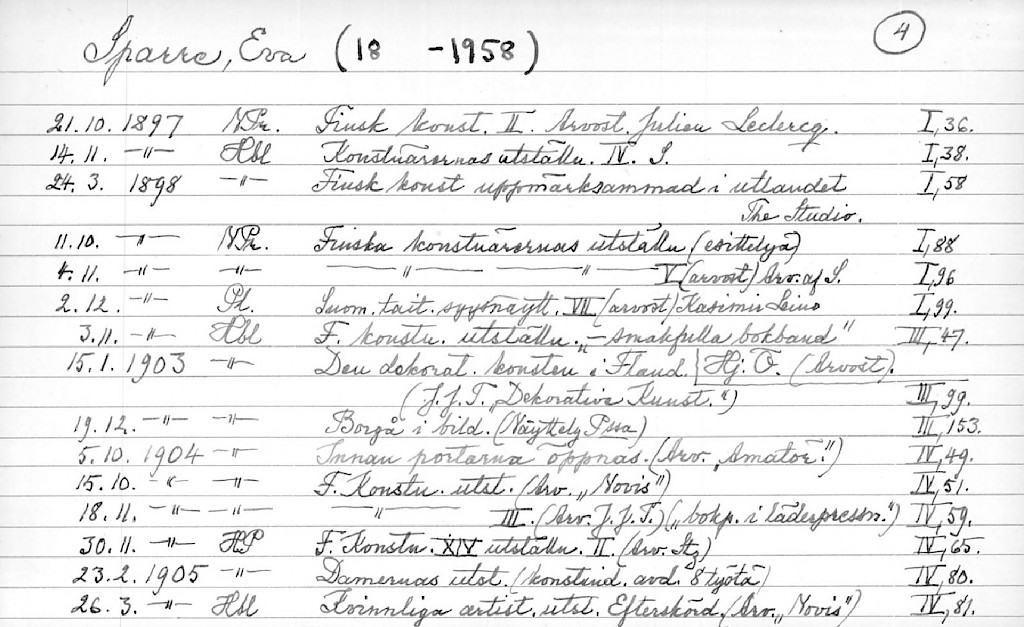 4
Sparre, Eva (18 -1958)
21.10. 1897 N.Pr. Finsk konst. II. Arvost. Julien Leclercq. I, 36.
14.11. -"- Hbl Konstnärernas utställn. IV. S. I, 38.
24.3. 1898 -"- Finsk konst uppmärksammad i utlandet I, 58
The Studio.
11.10. -"- N.Pr. Finska konstnärernas utställn (esittelyä) I, 88
4.11. -"- -"- -"- -"- V (arvost) Arv. af S. I, 96
2.12. -"- Pl. Suom. tait. syysnäytt. VII (arvost) Kasimir Leino I, 99.
3.11. -"- Hbl F. konstn. utställn. „-smakfulla bokband" III, 47.
15.1. 1903 -"- Den dekorat. konsten i Finland. Hj. O. (Arvost).
(J.J.T. „Dekorative Kunst.") III, 99.
19.12. -"- -"- Borgå i bild. (Näyttely P:ssa) III, 153.
5.10. 1904 -"- Innan portarna öppnas. (Arv. „Amatör.") IV, 49.
15.10. -"- -"- F. Konstn. utst. (Arv. „Novis") IV, 51.
18.11. -"- -"- -"- III. (Arv. J.J.T.) („bokp. i läderpressn.") IV, 59.
30.11. -"- HP F. Konstn. XIV utställn. II. (Arv. Stz) IV, 65.
23.2. 1905 -"- Damernas utst. (konstind. avd. 8 työtä) IV, 80.
26.3. -"- Hbl Kvinnliga artist. utst. Efterskörd. (Arv. „Novis") IV, 81.